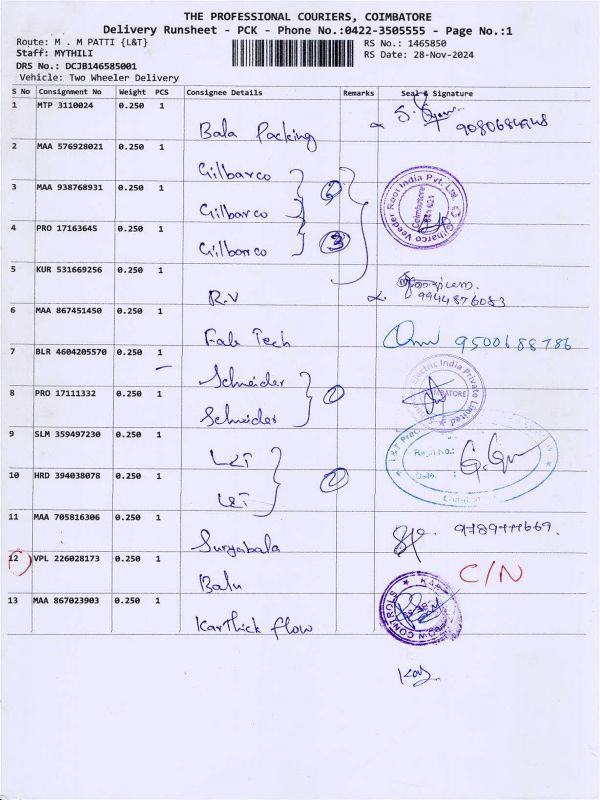 THE PROFESSIONAL COURIERS, COIMBATORE
Delivery Runsheet - PCK - Phone No.:0422-3505555 - Page No.:1
Route: M . M PATTI {L&T} RS No.: 1465850
Staff: MYTHILI RS Date: 28-Nov-2024
DRS No.: DCJB146585001
Vehicle: Two Wheeler Delivery
S No Consignment No Weight PCS Consignee Details Remarks Seal & Signature
1 MTP 3110024 0.250 1 Bala Packing
2 MAA 576928021 0.250 1 Gilbarco
3 MAA 938768931 0.250 1 Gilbarco
4 PRO 17163645 0.250 1 Gilbarco 3
Gilbarco Veeder Root India Pvt. Ltd.
Coimbatore
5 KUR 531669256 0.250 1 R.V 9944876083
6 MAA 867451450 0.250 1 Fab Tech 9500688786
7 BLR 4604205570 0.250 1 Schneider
8 PRO 17111332 0.250 1 Schneider
Electric India Private Limited
9 SLM 359497230 0.250 1 L&T
10 HRD 394038078 0.250 1 L&T
Regn No.:
Date:
11 MAA 705816306 0.250 1 Suryabala
12 VPL 226028173 0.250 1 Balu C/N
13 MAA 867023903 0.250 1 Karthick flow